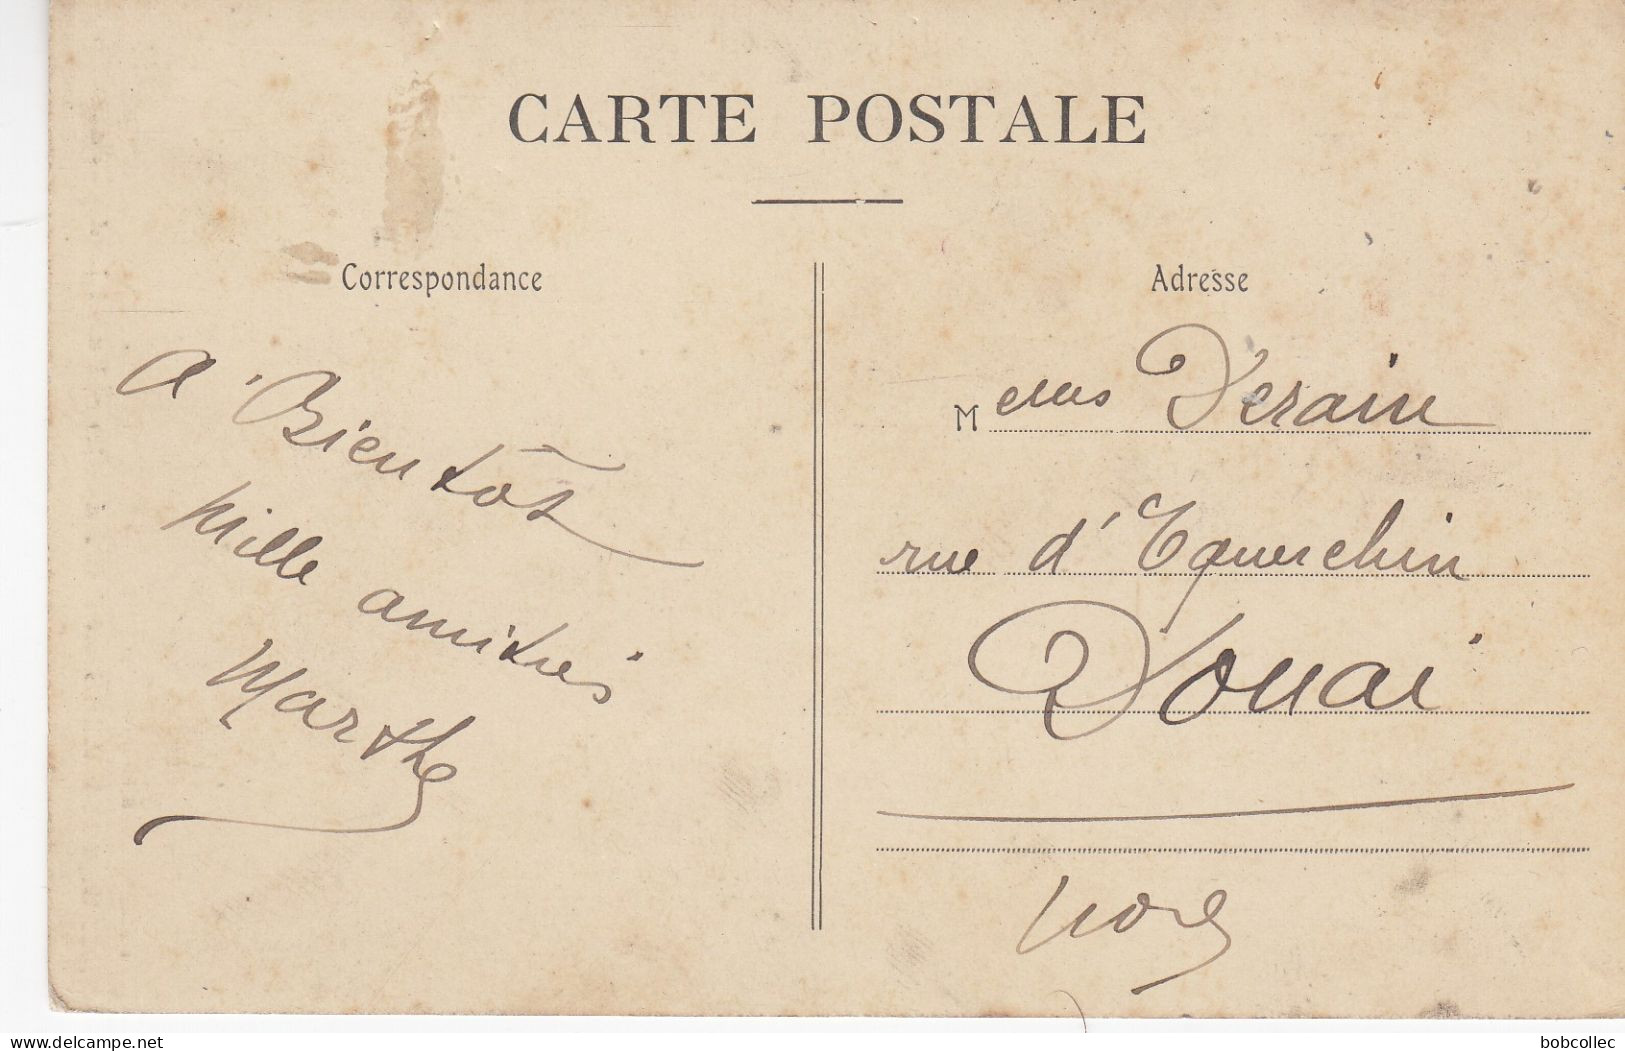 CARTE POSTALE
Correspondance
A' Bientôt
Mille amitiés
Marthe
Adresse
Melles Derain
rue d'Equerchin
Douai
Nord
delcampe.net
bobcollec